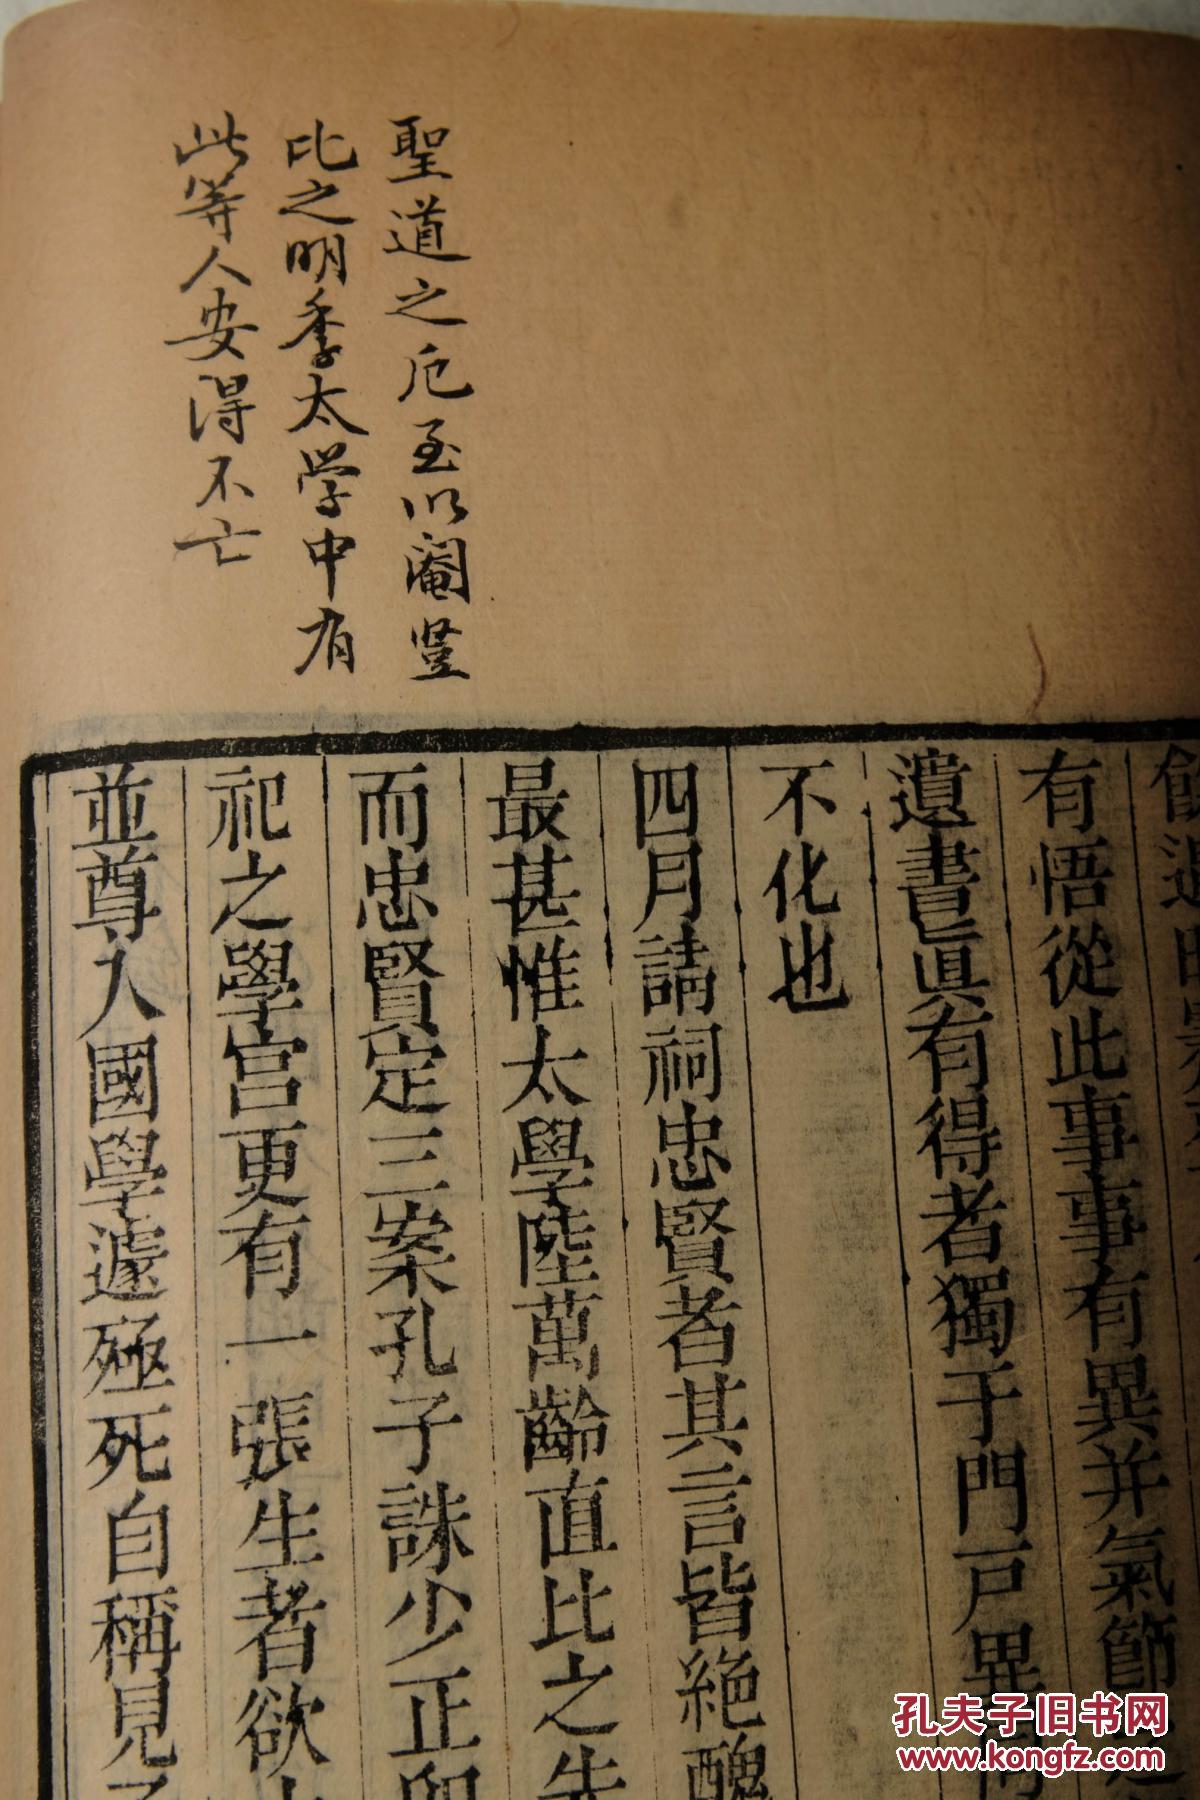 聖道之厄至以閹豎
比之明季太学中有
此等人安得不亡
有悟從此事事有異并氣節
遺書真有得者獨于門戸異
不化也
四月請祠忠賢者其言皆絶醜
最甚惟太學陸萬齡直比之先
而忠賢定三案孔子誅少正卯
祀之學宫更有一張生者欲
並尊入國學遽殛死自稱見
孔夫子旧书网
www.kongfz.com